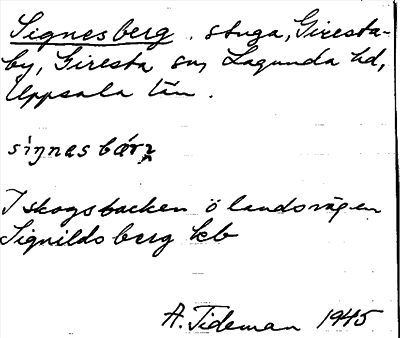 Signesberg. stuga, Giresta-
by, Giresta sn, Lagunda hd,
Uppsala län.
siŋnasbárɿ
I skogsbacken ö landsvägen
Signildsberg kb
A. Tideman 1945